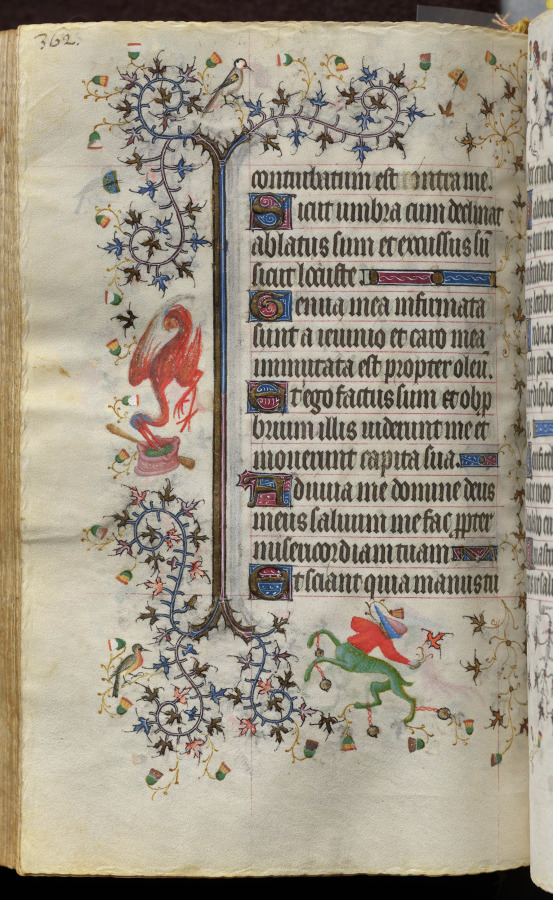 362.
conturbatum est contra me.
Sicut umbra cum declinat
ablatus sum et excussus sū
sicut locuste.
Genua mea infirmata
sunt a ieiunio et caro mea
immutata est propter oleū.
Et ego factus sum et obp
brium illis uiderunt me et
mouerunt capita sua.
Adiuua me domine deus
meus saluum me fac ꝓpter
misericordiam tuam
Et sciant quia manus tu